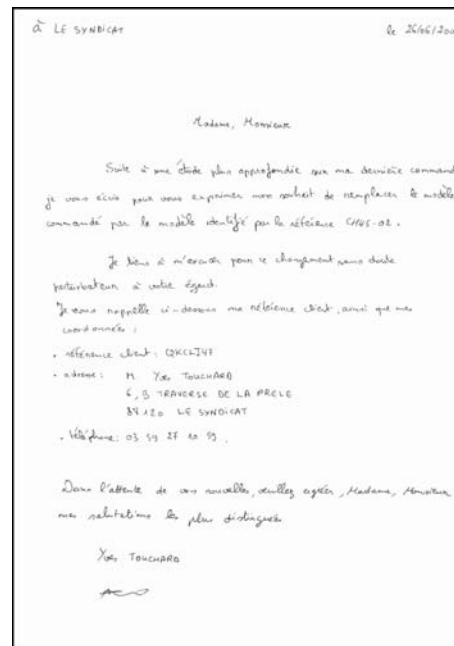 à LE SYNDICAT
le 26/06/200
Madame, Monsieur
Suite à une étude plus approfondie sur ma dernière command
je vous écris pour vous exprimer mon souhait de remplacer le modèle
commandé par le modèle identifié par la référence CH45-02.
Je tiens à m'excuser pour ce changement sans doute
perturbateur à votre égard.
Je vous rappelle ci-dessous ma référence client, ainsi que mes
coordonnées :
• référence client : CQKCLI47
• adresse : M. Yves TOUCHARD
6, B TRAVERSE DE LA PRELE
88120 LE SYNDICAT
• téléphone : 03 59 27 10 59.
Dans l'attente de vos nouvelles, veuillez agréer, Madame, Monsieur
mes salutations les plus distinguées
Yves TOUCHARD